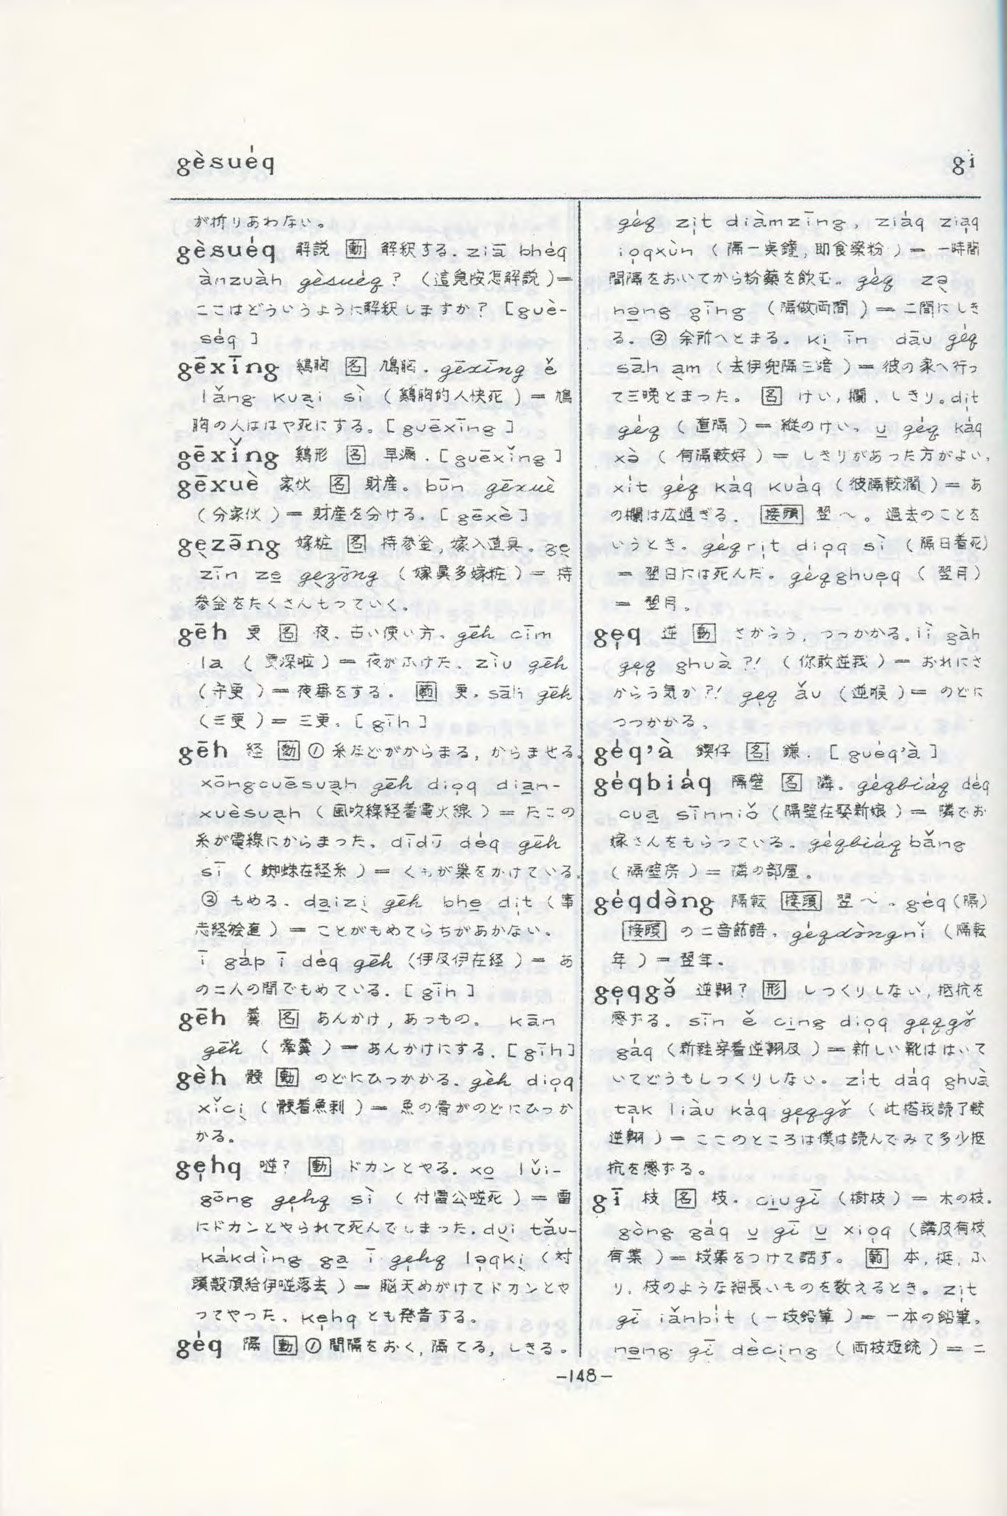 gèsuéq
gi
が折りあわない。
gèsuéq 解説 動 解釈する. ziā bhéq
ànzuàh gèsuéq ? (這兒按怎解説)=
ここはどういうように解釈しますか? [guè-
séq ]
gēxīng 鷄胸 名 鳩胸. gēxīng ě
lǎng kuại sì (鷄胸的人快死 )= 鳩
胸の人ははや死にする。[guēxīng ]
gēxǐng 鷄形 名 早漏. [guēxǐng ]
gēxuè 家伙 名 財産。 būn gēxuè
(分家伙 )= 財産を分ける. [gēxè]
gẹzāng 嫁粧 名 持参金, 嫁入道具. gẹ
zīn zẹ gẹzāng (嫁真多嫁粧 )= 持
参金をたくさんもっていく。
gēh 更 名 夜、古い使い方、gēh cīm
la ( 更深啦 )= 夜がふけた、zīu gēh
(守更 )= 夜番をする。 助 更. sāh gēh
(三更 )= 三更. [gīh ]
gēh 経 動 ① 糸などがからまる, からませる.
xōngcuēsuạh gēh diọq diạn-
xuèsuạh (風吹線経着電火線 )= たこの
糸が電線にからまった. dīdū déq gēh
sī ( 蜘蛛在経糸 )= くもが巣をかけている.
② もめる. dạizì gēh bhẹ dịt (事
志経𣍐直 )= ことがもめてらちがあかない。
ī gáp ī déq gēh (伊及伊在経 )= あ
の二人の間でもめている. [gīh ]
gēh 羹 名 あんかけ, あつもの。 kān
gēh ( 牽羹 )= あんかけにする. [gīh]
gèh 骾 動 のどにひっかかる. gèh diọq
xǐcì ( 骾着魚刺 )= 魚の骨がのどにひっか
かる。
gẹhq 噬? 動 ドカンとやる. xo lǔi-
gōng gẹhq sì ( 付雷公噬死 )= 雷
にドカンとやられて死んでしまった. dụi tǎu-
kákdìng gạ ī gẹhq lạqkị (対
頭殼頂給伊噬落去 )= 脳天めがけてドカンとや
ってやった. kẹhq とも発音する。
géq 隔 動 ① 間隔をおく, 隔てる, しきる。
géq zịt diàmzīng, ziáq ziạq
iọqxùn ( 隔一奌鐘, 即食薬粉 )= 一時間
間隔をおいてから粉薬を飲む。 géq zạ
nạng gīng (隔做両間 )= 二間にしき
る。② 余所へとまる。 kì īn dāu géq
sāh ạm (去伊兜隔三暗 )= 彼の家へ行っ
て三晩とまった。 名 けい, 欄, しきり。dịt
géq (直隔 )= 縦のけい。ụ géq káq
xà ( 有隔較好 )= しきりがあった方がよい,
xít géq káq kuáq (彼隔較濶 )= あ
の欄は広過ぎる. 接頭 翌 〜。 過去のことを
いうとき. géqrịt diọq sì (隔日着死)
= 翌日には死んだ。 géqghuẹq (翌月)
= 翌月.
gẹq 逆 動 さからう, つっかかる. lì gàh
gẹq ghuà ?! (你敢逆我 )= おれにさ
からう気か?! gẹq ǎu (逆喉 )= のどに
つっかかる.
géq’à 鍥仔 名 鎌. [guéq’à ]
géqbiáq 隔壁 名 隣. géqbiáq déq
cuạ sīnniǒ (隔壁在娶新娘 )= 隣でお
嫁さんをもらっている. géqbiáq bǎng
( 隔壁房 )= 隣の部屋。
géqdàng 隔転 接頭 翌 〜. géq (隔)
接頭 の二音節語. géqdàngnǐ (隔転
年 )= 翌年.
gẹqgǎ 逆翺? 形 しっくりしない, 抵抗を
感ずる. sīn ě cịng diọq gẹqgǎ
gáq (新鞋穿着逆翺及 )= 新しい靴ははいて
いてどうもしっくりしない。 zít dáq ghuà
tạk liàu káq gẹqgǎ (此搭我読了較
逆翺 )= ここのところは僕は読んでみて多少抵
抗を感ずる。
gī 枝 名 枝. cịugī (樹枝 )= 木の枝.
gòng gáq ụ gī ụ xiọq (講及有枝
有葉 )= 枝葉をつけて話す。 助 本, 挺, ふ
り, 枝のような細長いものを数えるとき。zịt
gī iǎnbít (一枝鉛筆 )= 一本の鉛筆。
nạng gī dècìng (両枝短銃 )= 二
-148-